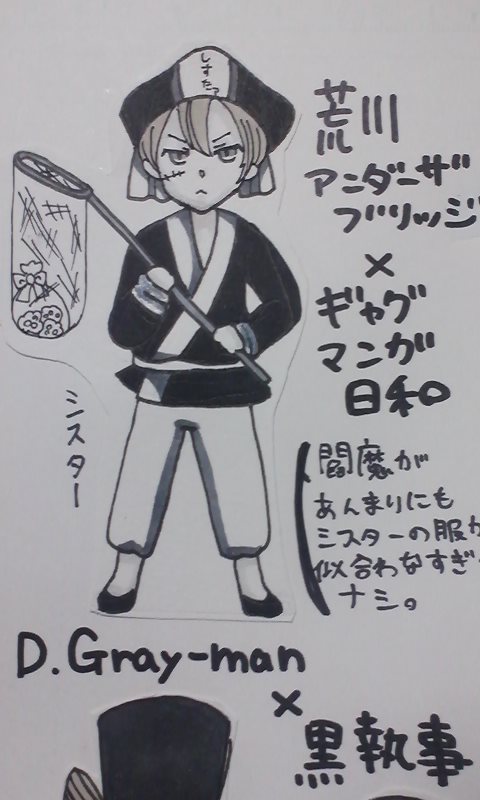 しすたー
荒川
アンダーザ
ブリッジ
×
ギャグ
マンガ
日和
シスター
閻魔が
あんまりにも
シスターの服が
似合わなすぎ
ナシ。
D.Gray-man
×
黒執事